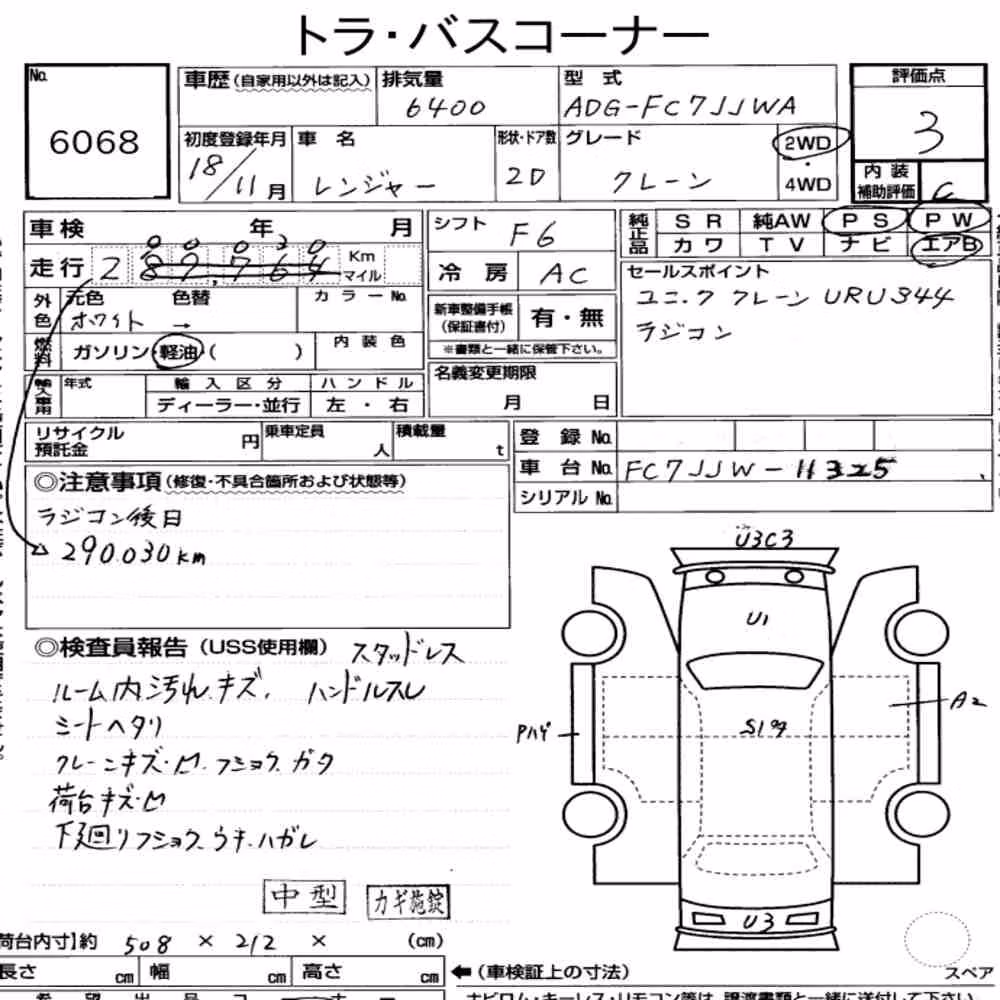 トラ・バスコーナー
No. 6068
車歴（自家用以外は記入） 排気量 6400 型式 ADG-FC7JJWA
初度登録年月 18/11月 車名 レンジャー 形状・ドア数 2D グレード クレーン 2WD・4WD
評価点 3
内装補助評価 C
車検 年 月
走行 2 Km マイル
外色 元色 ホワイト 色替 → カラーNo.
燃料 ガソリン・軽油・（ ） 内装色
年式 輸入区分 ディーラー・並行 ハンドル 左・右
シフト F6
冷房 AC
新車整備手帳（保証書付） 有・無
※書類と一緒に保管下さい。
名義変更期限 月 日
純正品 SR 純AW PS PW
カワ TV ナビ エアB
セールスポイント
ユニック クレーン URU344
ラジコン
リサイクル預託金 円 乗車定員 人 積載量 t
登録No.
車台No. FC7JJW-11325
シリアルNo.
◎注意事項（修復・不具合箇所および状態等）
ラジコン後日
290,030km
◎検査員報告（USS使用欄） スタッドレス
ルーム内汚れ.キズ. ハンドルスレ
シートヘタリ
クレーンキズ・凹.フショク.ガタ
荷台キズ・凹
下廻リフショク.ウキ.ハガレ
中型 カギ施錠
荷台内寸】約 508 × 212 × （cm）
長さ cm 幅 cm 高さ cm ←（車検証上の寸法）
U3C3
U1
A2
Pハゲ
U3
スペア
ナビロム・キーレス・リモコン等は、譲渡書類と一緒に送付して下さい